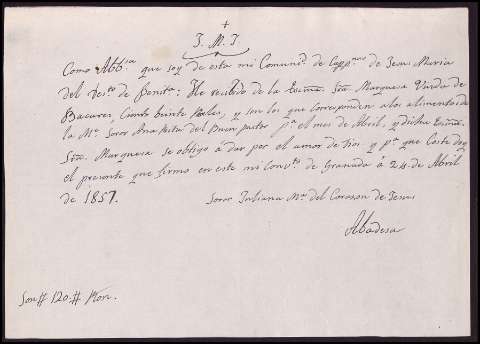 +
J. M. J
Como Abb.sa que soy de esta mi Comunid. de Capp.nas de Jesus Maria
del de Penit.a; He recibido de la Exma. Sra. Marquesa Viuda de
Bacares, Ciento beinte Reales, y son los que corresponden a los alimentos de
la M.e Soror Ana Rita del Buen pastor p.a el mes de Abril, y dicha Exma.
Sra. Marquesa se obligó á dar por el amor de Dios y p.a que Coste doy
el presente que firmo en este mi Conv.to de Granada á 24 de Abril
de 1857.
Soror Juliana M.a del Corason de Jesus
Abadesa
Son # 120 # Rvon.